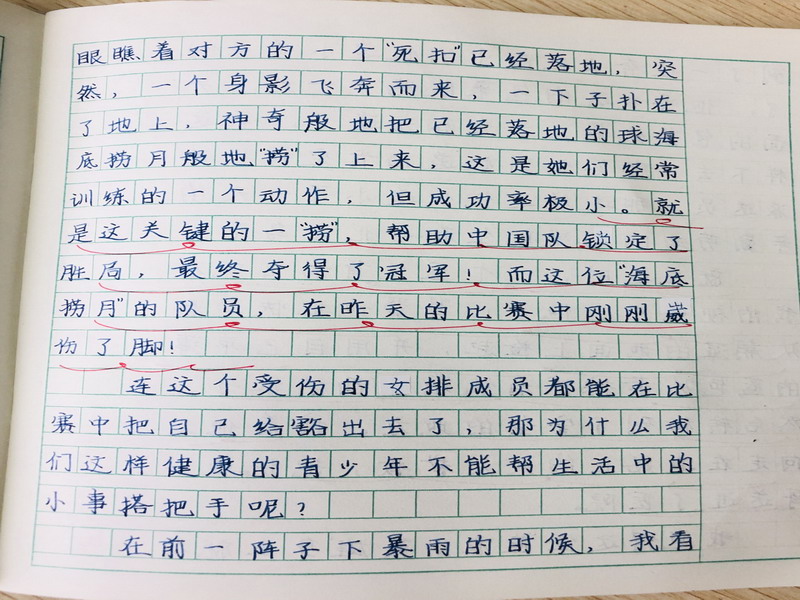 眼瞧着对方的一个“死扣”已经落地，突
然，一个身影飞奔而来，一下子扑在
了地上，神奇般地把已经落地的球海
底捞月般地“捞”了上来，这是她们经常
训练的一个动作，但成功率极小。就
是这关键的一“捞”，帮助中国队锁定了
胜局，最终夺得了冠军！而这位“海底
捞月”的队员，在昨天的比赛中刚刚崴
伤了脚！
连这个受伤的女排成员都能在比
赛中把自己给豁出去了，那为什么我
们这样健康的青少年不能帮生活中的
小事搭把手呢？
在前一阵子下暴雨的时候，我看